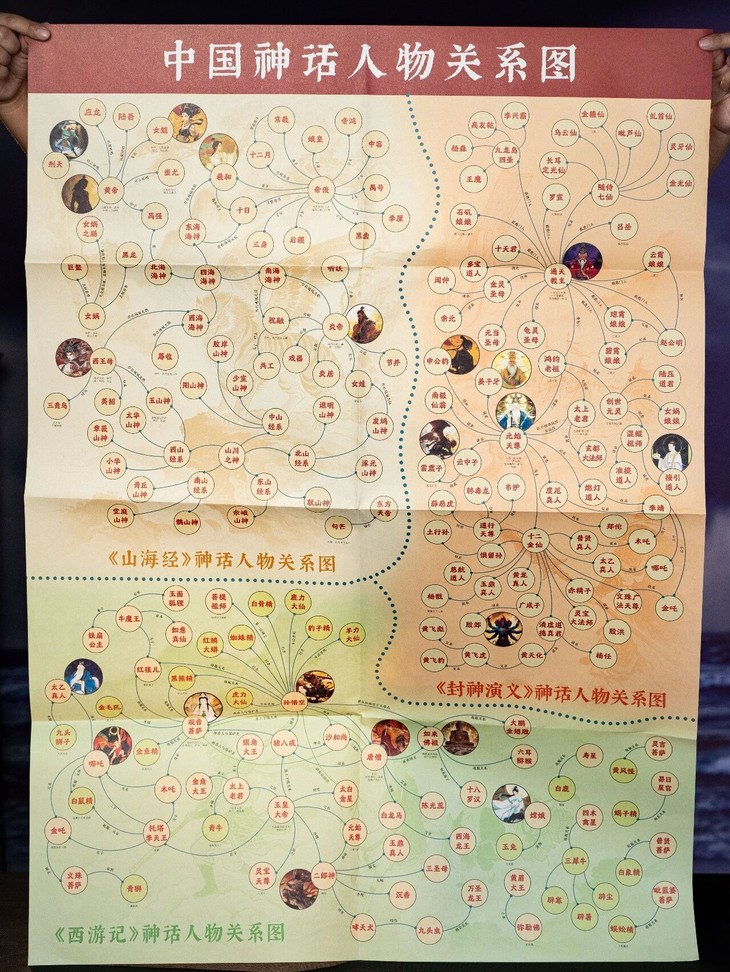 中国神话人物关系图
应龙
陆吾
女魃
常羲
娥皇
帝鸿
中容
刑天
黄帝
蚩尤
羲和
十二月
帝俊
禺号
季厘
女娲之肠
禺强
东海海神
十日
三身
后稷
黑齿
巨鳌
黑龙
北海海神
四海海神
南海海神
听訞
女娲
西海海神
祝融
炎帝
西王母
蓐收
敖岸山神
共工
戏器
炎居
节并
女娃
三青鸟
英招
玉山神
阳山山神
少室山神
骄明山神
章莪山神
太华山神
中山经系
发鸠山神
小华山神
西山经系
山川之神
北山经系
浑光山神
青丘山神
南山经系
东山经系
堂庭山神
鹊山神
耿山神
句芒
东方天帝
《山海经》神话人物关系图
高友乾
李兴霸
金箍仙
虬首仙
杨森
九龙岛四圣
乌云仙
毗芦仙
灵牙仙
王魔
长耳定光仙
随侍七仙
金光仙
罗宣
石矶娘娘
吕岳
十天君
云霄娘娘
闻仲
多宝道人
金灵圣母
通天教主
余元
琼霄娘娘
赵公明
元当圣母
龟灵圣母
碧霄娘娘
申公豹
鸿钧老祖
陆压道君
姜子牙
南极仙翁
太上老君
创世元灵
女娲娘娘
元始天尊
混鲲祖师
雷震子
云中子
玄都大法师
准提道人
接引道人
薛恶虎
韩毒龙
韦护
度厄真人
燃灯道人
李靖
土行孙
道行天尊
十二金仙
普贤真人
郑伦
木吒
惧留孙
太乙真人
哪吒
慈航道人
玉鼎真人
黄龙真人
赤精子
文殊广法天尊
金吒
杨戬
广成子
灵宝大法师
黄飞彪
殷郊
清虚道德真君
殷洪
黄飞豹
黄飞虎
黄天化
杨任
《封神演义》神话人物关系图
玉面狐狸
菩提祖师
白骨精
鹿力大仙
牛魔王
豹子精
羊力大仙
铁扇公主
如意真仙
红鳞大蟒
蜘蛛精
红孩儿
黑熊精
太乙真人
虎力大仙
孙悟空
金毛犼
观音菩萨
九头狮子
金鱼精
银角大王
猪八戒
沙和尚
唐僧
如来佛祖
大鹏金翅雕
六耳猕猴
哪吒
寿星
灵吉菩萨
黄风怪
昴日星官
白鼠精
木吒
金角大王
太上老君
玉皇大帝
太白金星
十八罗汉
白鹿
陈光蕊
嫦娥
四木禽星
蝎子精
金吒
托塔李天王
青牛
元始天尊
白龙马
玉鼎真人
西海龙王
玉兔
普贤菩萨
三犀牛
白象精
文殊菩萨
青狮
灵宝天尊
二郎神
三圣母
沉香
万圣龙王
黄眉大王
辟寒
辟尘
毗蓝婆菩萨
辟暑
哮天犬
九头虫
弥勒佛
蜈蚣精
《西游记》神话人物关系图